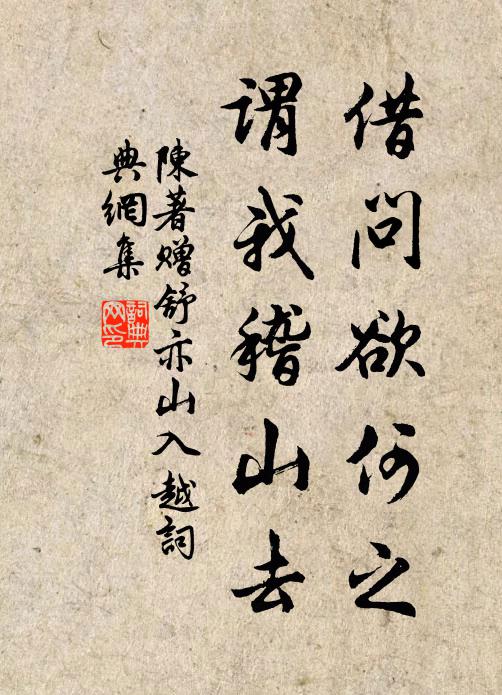 借問欲何之
謂我稽山去
陳著赠舒亦山入越詞
典網集
詞典網印